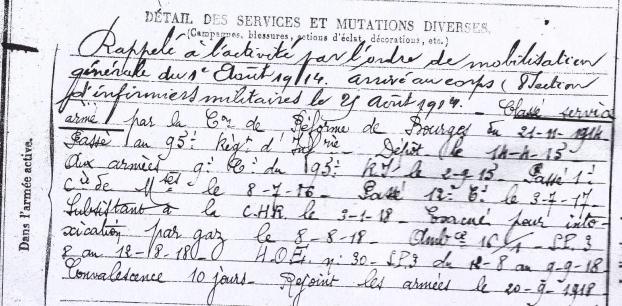 DÉTAIL DES SERVICES ET MUTATIONS DIVERSES.
(Campagnes, blessures, actions d'éclat, décorations, etc.)
Rappelé à l'activité par l'ordre de mobilisation
générale du 1er Août 1914. arrivé au corps (8e Section
d'infirmiers militaires le 25 août 1914. Classé service
armé par la Con de Réforme de Bourges du 21-11-1914
Passé au 95e Régt d'Infrie Dépôt le 14-4-15
Aux armées 9e Cie du 95e R.I. le 2-9-15 Passé 1e
Cie de Mses le 8-7-16 Passé 12e Cie le 3-7-17
Subsistant à la C.H.R. le 3-1-18 Evacué pour into-
xication par gaz le 8-8-18 Ambce S.P. 3
au 12-8-18 H.O.E. n° 30 - S.P. du 12-8 au 9-9-18
Convalescence 10 jours - Rejoint les armées le 20-9-1918
Dans l'armée active.